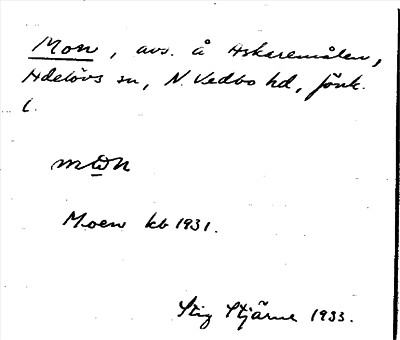 Mon, avs. å Askaremålen,
Adelövs sn, N. Vedbo hd, Jönk.
l.
mωn
Moen kb 1931.
Stig Stjärne 1933.